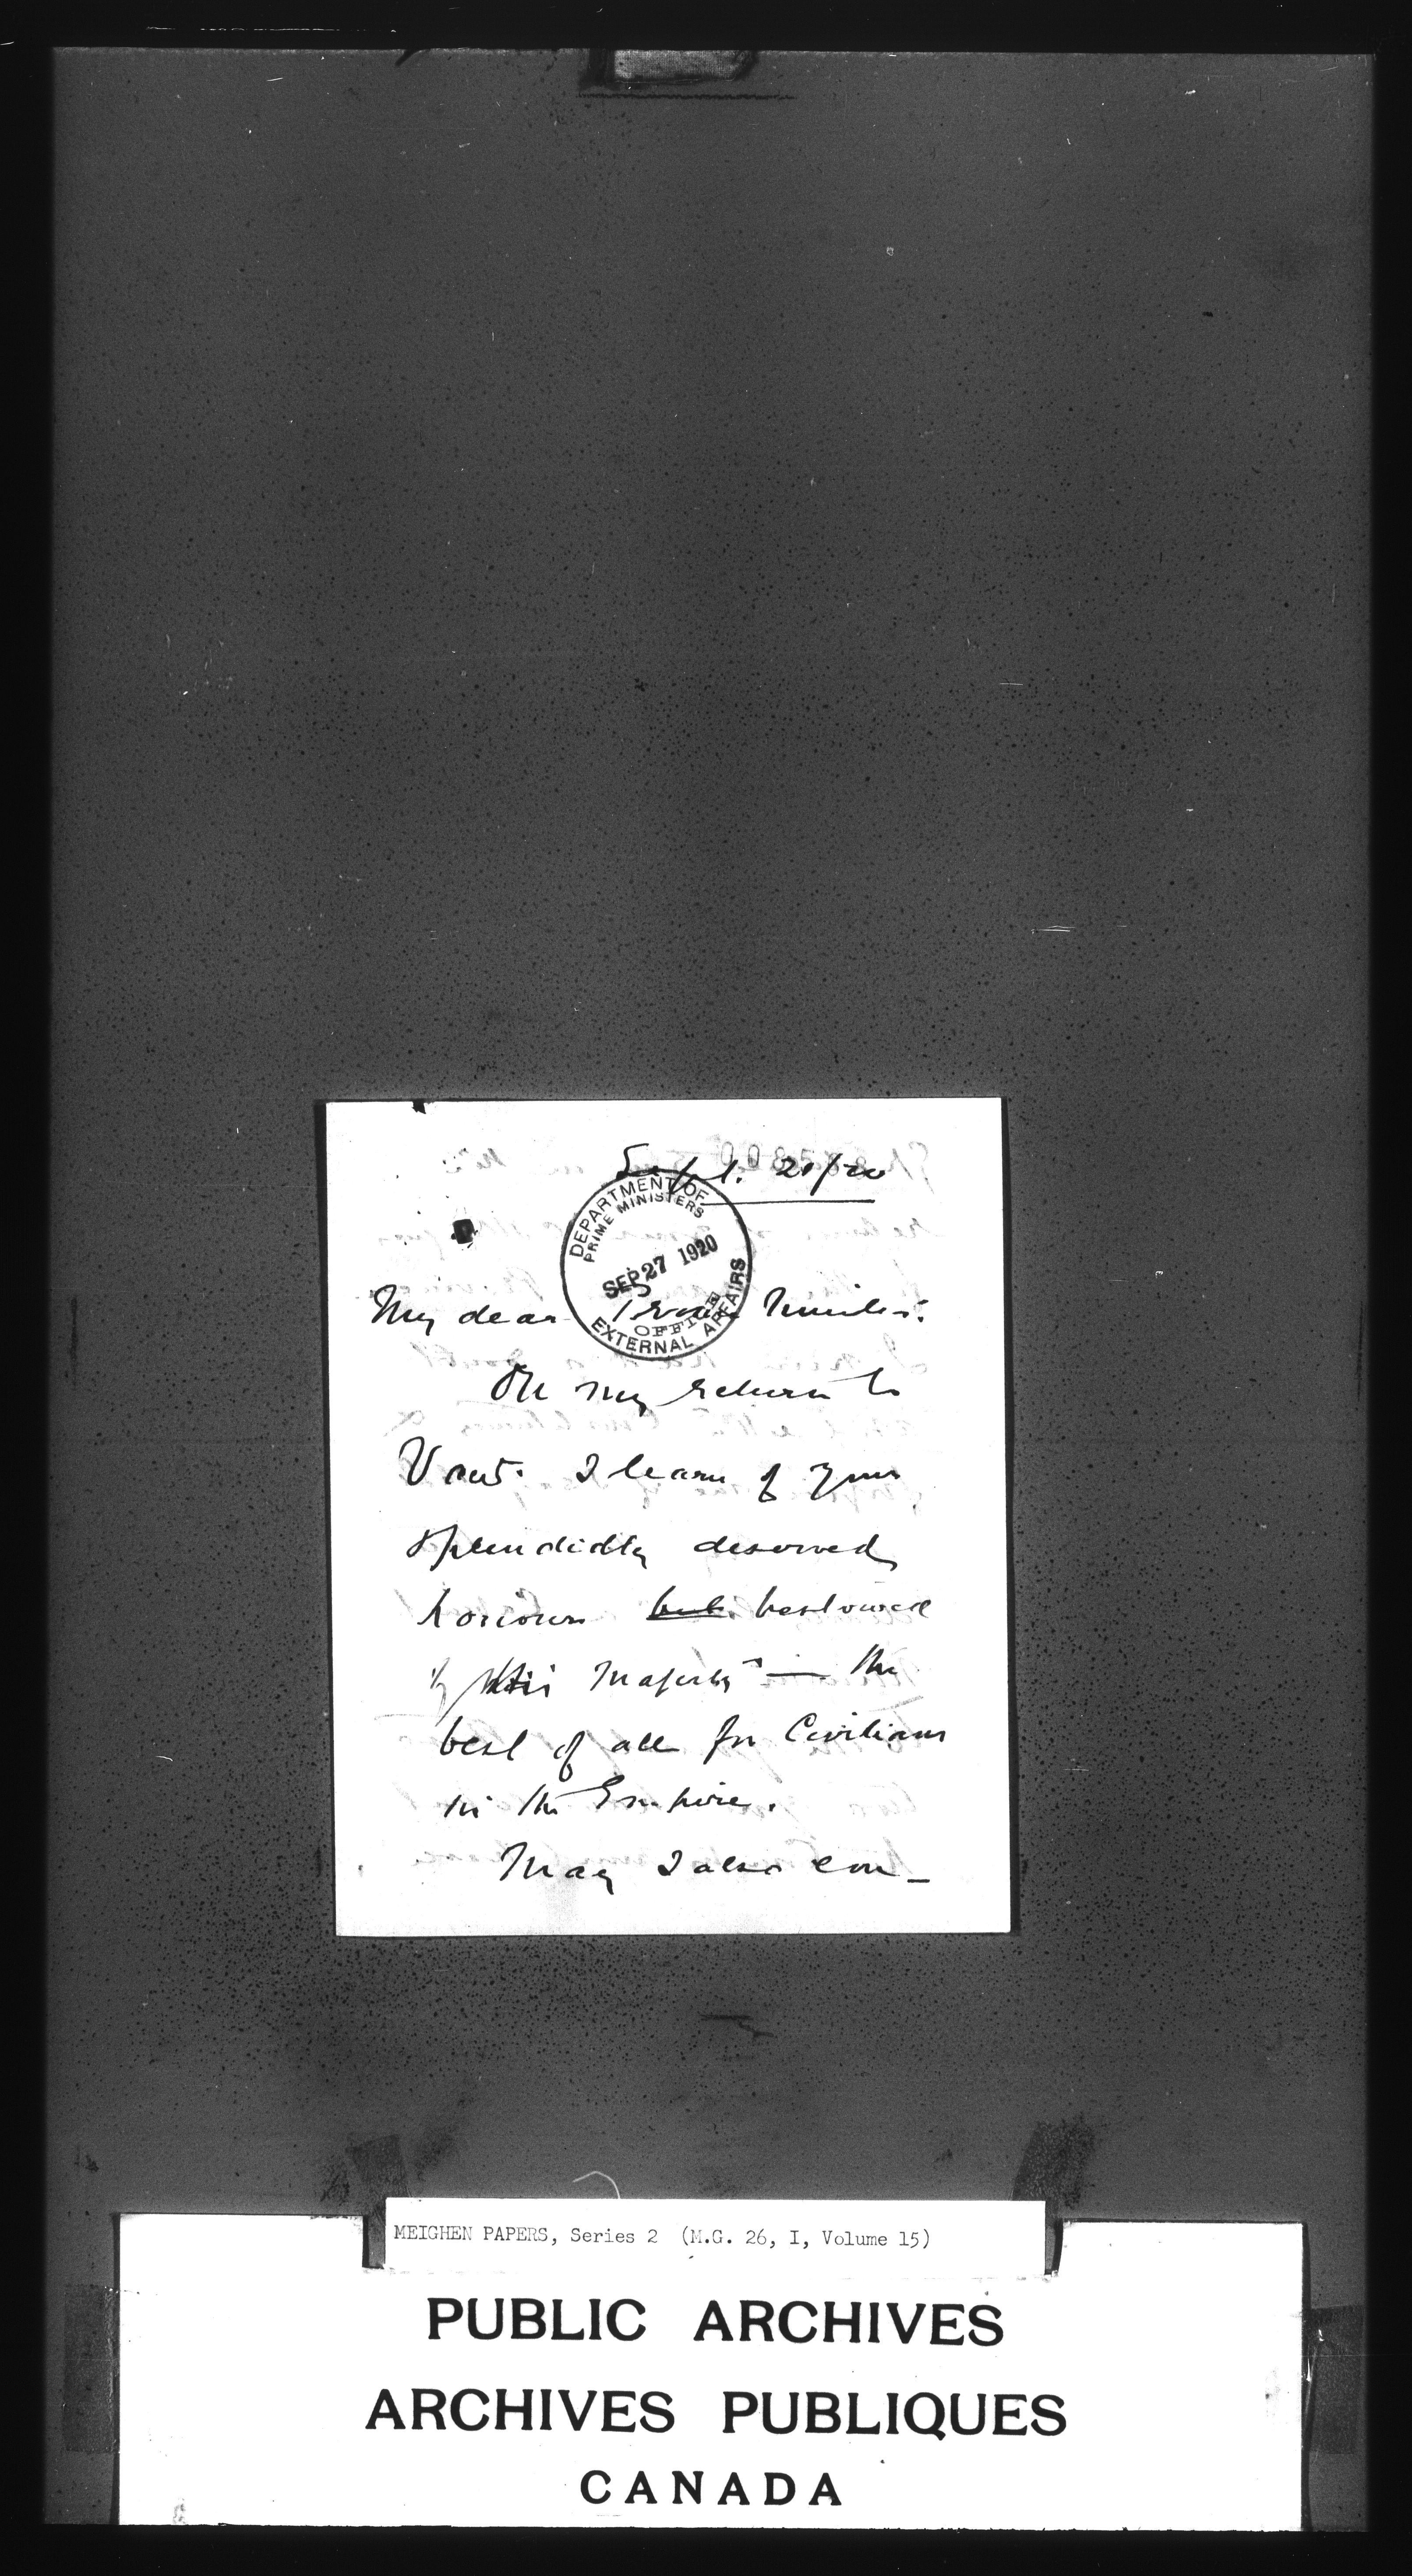 Sept. 21/20
DEPARTMENT OF
PRIME MINISTERS
SEP 27 1920
OFFICE
EXTERNAL AFFAIRS
My dear Prime Minister:
On my return to
I learn of your
splendidly deserved
honours but bestowed
by His Majesty — the
best of all for Civilians
in the Empire.
May I also con-
MEIGHEN PAPERS, Series 2 (M.G. 26, I, Volume 15)
PUBLIC ARCHIVES
ARCHIVES PUBLIQUES
CANADA